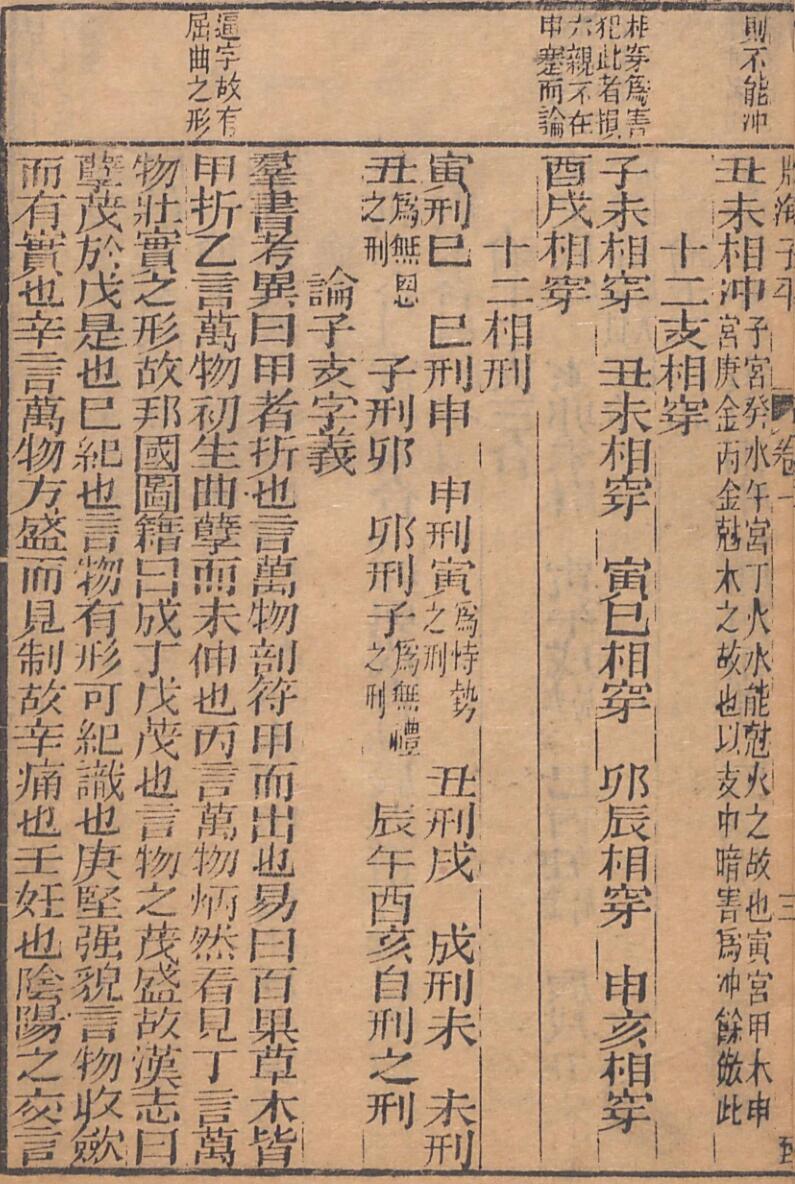 則不能冲
相穿為害
犯此者損
六親不在
申蹇而論
逼字故有
屈曲之形
淵海子平 卷一 三
丑未相冲子宮癸水午宮丁火水能尅火之故也寅宮甲木申
宮庚金丙金尅木之故也以支中暗害為冲餘倣此
十二支相穿
子未相穿 丑未相穿 寅巳相穿 卯辰相穿 申亥相穿
酉戌相穿
十二相刑
寅刑巳 巳刑申 申刑寅為恃勢之刑 丑刑戌 戌刑未 未刑
丑為無恩之刑 子刑卯 卯刑子為無禮之刑 辰午酉亥自刑之刑
論子支字義
羣書考異曰甲者折也言萬物剖符甲而出也易曰百果草木皆
甲折乙言萬物初生曲孽而未伸也丙言萬物炳然看見丁言萬
物壯實之形故邦國圖籍曰成丁戊茂也言物之茂盛故漢志曰
孽茂於戊是也巳紀也言物有形可紀識也庚堅强貌言物收斂
而有實也辛言萬物方盛而見制故辛痛也壬妊也陰陽之交言